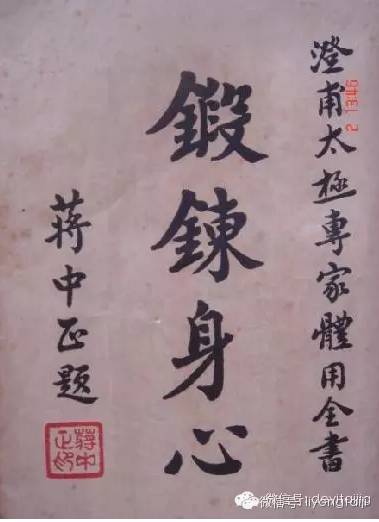 澄甫太極專家體用全書
鍛鍊身心
蔣中正題
蔣中正印
2 13:46
微信号: